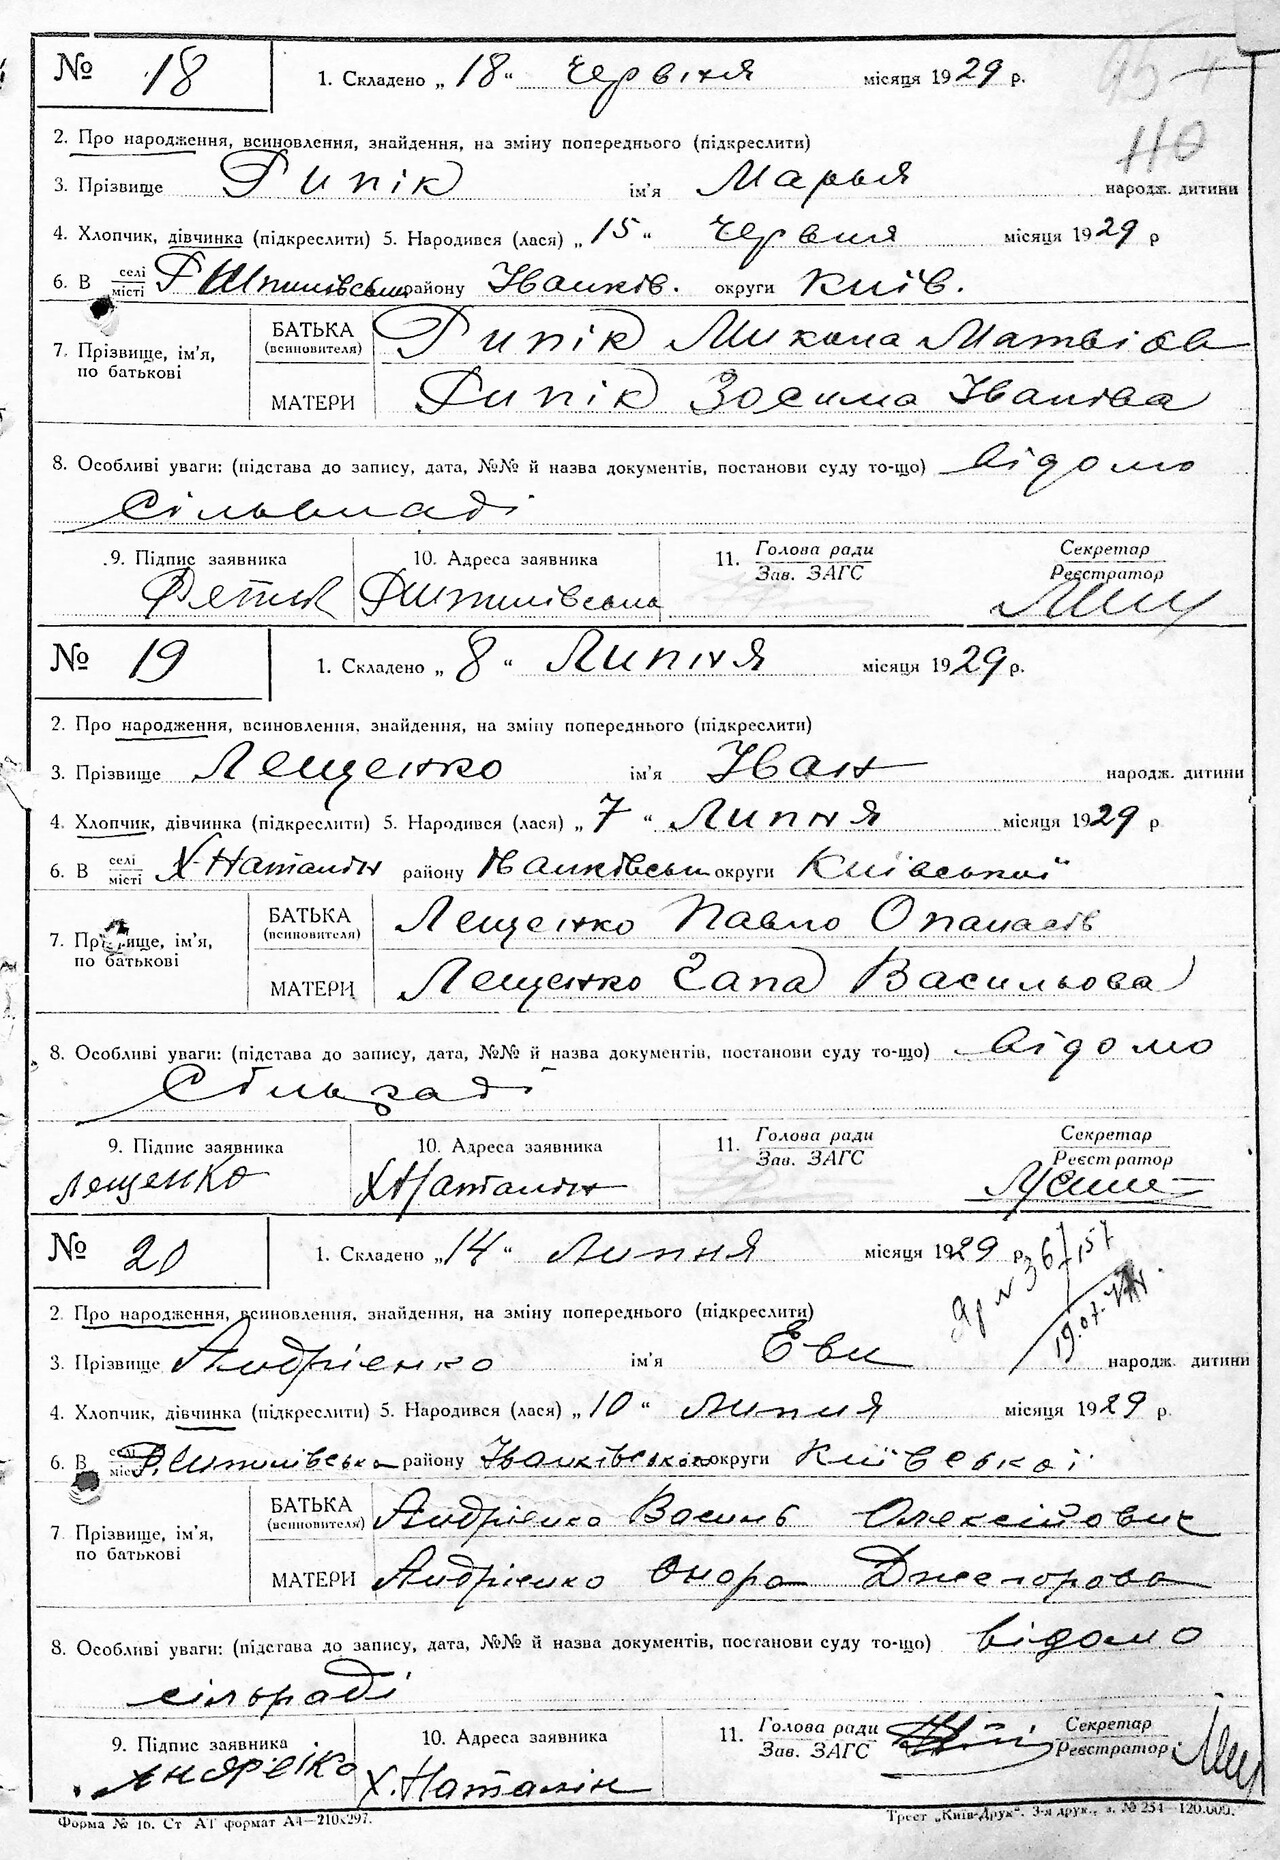 № 18 1. Складено „18“ Червіня місяця 1929 р.
110
2. Про народження, всиновлення, знайдення, на зміну попереднього (підкреслити)
3. Прізвище Рипік ім'я Марья народж. дитини
4. Хлопчик, дівчинка (підкреслити) 5. Народився (лася) „15“ Червня місяця 1929 р
6. В селі місті району Іванків. округи Київ.
7. Прізвище, ім'я, по батькові
БАТЬКА (всиновителя) Рипік Микола Матвіїв
МАТЕРИ Рипік Зосима Іванова
8. Особливі уваги: (підстава до запису, дата, №№ й назва документів, постанови суду то-що) відомо
сільвладі
9. Підпис заявника 10. Адреса заявника 11. Голова ради Зав. ЗАГС Секретар Реєстратор
№ 19 1. Складено „8“ Липня місяця 1929 р.
2. Про народження, всиновлення, знайдення, на зміну попереднього (підкреслити)
3. Прізвище Лещенко ім'я Іван народж. дитини
4. Хлопчик, дівчинка (підкреслити) 5. Народився (лася) „7“ Липня місяця 1929 р
6. В селі місті Х Наталін району Іванківськ округи Київської
7. Прізвище, ім'я, по батькові
БАТЬКА (всиновителя) Лещенко Павло Опанасів
МАТЕРИ Лещенко Гапа Васильова
8. Особливі уваги: (підстава до запису, дата, №№ й назва документів, постанови суду то-що) відомо
Сільраді
9. Підпис заявника 10. Адреса заявника 11. Голова ради Зав. ЗАГС Секретар Реєстратор
лещенко Х Наталін
№ 20 1. Складено „14“ Липня місяця 1929 р.
2. Про народження, всиновлення, знайдення, на зміну попереднього (підкреслити)
3. Прізвище Андрієнко ім'я Еви народж. дитини
4. Хлопчик, дівчинка (підкреслити) 5. Народився (лася) „10“ липня місяця 1929 р.
6. В селі місті району округи Київської
7. Прізвище, ім'я, по батькові
БАТЬКА (всиновителя) Андрієнко Василь Олексійович
МАТЕРИ Андрієнко
8. Особливі уваги: (підстава до запису, дата, №№ й назва документів, постанови суду то-що) відомо
сільраді
9. Підпис заявника 10. Адреса заявника 11. Голова ради Зав. ЗАГС Секретар Реєстратор
Х. Наталін
Форма № 16. Ст А1 формат А4—210х297. Трест „Київ-Друк“. 3-я друк., з. № 254—120.000.